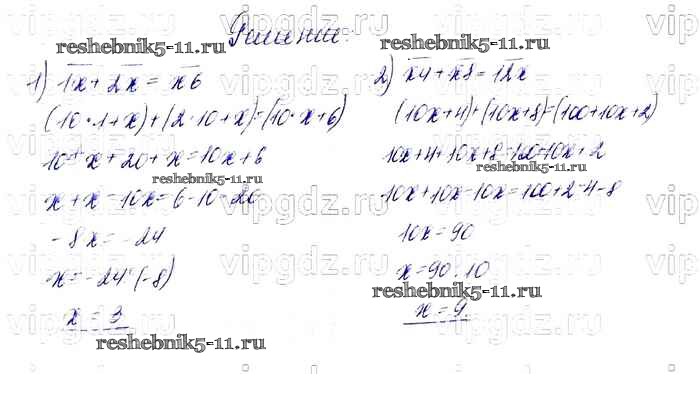 Решение:
1) 1x + 2x = x6
(10·1+x)+(2·10+x)=(10·x+6)
10+x+20+x=10x+6
x+x-10x=6-10-20
-8x=-24
x=-24:(-8)
x=3
2) x4+x8=12x
(10x+4)+(10x+8)=(100+10x+2)
10x+4+10x+8=100+10x+2
10x+10x-10x=100+2-4-8
10x=90
x=90:10
x=9.
reshebnik5-11.ru
reshebnik5-11.ru
reshebnik5-11.ru
reshebnik5-11.ru
reshebnik5-11.ru
vipgdz.ru
vipgdz.ru
vipgdz.ru
vipgdz.ru
vipgdz.ru
vipgdz.ru